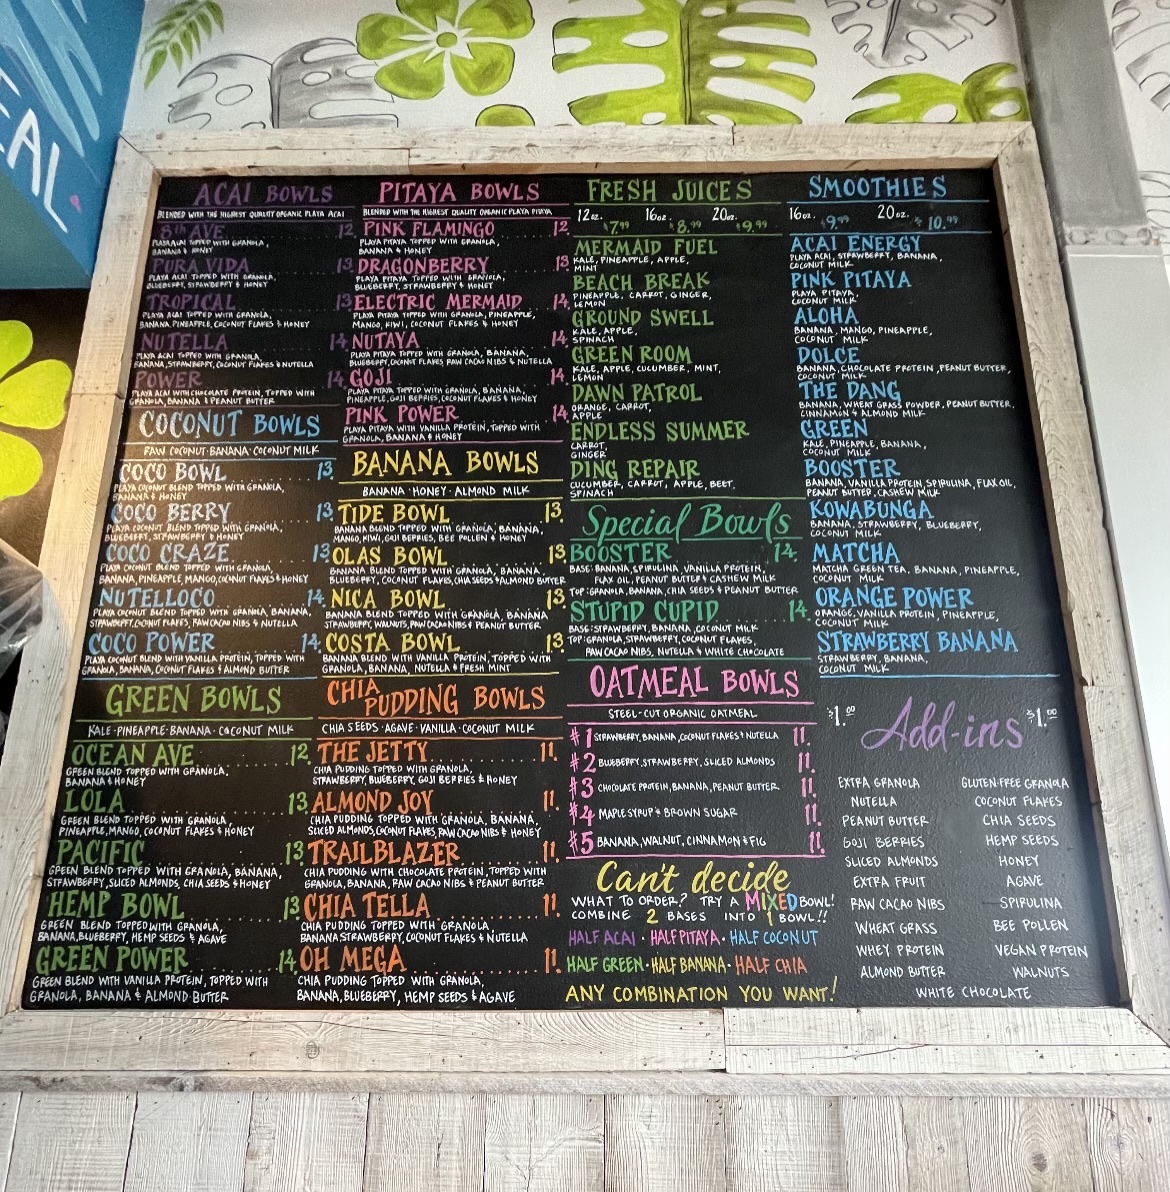 EAL
ACAI BOWLS
BLENDED WITH THE HIGHEST QUALITY ORGANIC PLAYA ACAI
8th AVE 12.
PLAYA ACAI TOPPED WITH GRANOLA,
BANANA & HONEY
PURA VIDA 13.
PLAYA ACAI TOPPED WITH GRANOLA,
BLUEBERRY, STRAWBERRY & HONEY
TROPICAL 13
PLAYA ACAI TOPPED WITH GRANOLA,
BANANA, PINEAPPLE, COCONUT FLAKES & HONEY
NUTELLA 14.
PLAYA ACAI TOPPED WITH GRANOLA,
BANANA, STRAWBERRY, COCONUT FLAKES & NUTELLA
POWER 14.
PLAYA ACAI WITH CHOCOLATE PROTEIN, TOPPED WITH
GRANOLA, BANANA & PEANUT BUTTER
COCONUT BOWLS
RAW COCONUT · BANANA · COCONUT MILK
COCO BOWL 13.
PLAYA COCONUT BLEND TOPPED WITH GRANOLA,
BANANA & HONEY
COCO BERRY 13.
PLAYA COCONUT BLEND TOPPED WITH GRANOLA,
BLUEBERRY, STRAWBERRY & HONEY
COCO CRAZE 13
PLAYA COCONUT BLEND TOPPED WITH GRANOLA,
BANANA, PINEAPPLE, MANGO, COCONUT FLAKES & HONEY
NUTELLOCO 14.
PLAYA COCONUT BLEND TOPPED WITH GRANOLA, BANANA,
STRAWBERRY, COCONUT FLAKES, RAW CACAO NIBS & NUTELLA
COCO POWER 14.
PLAYA COCONUT BLEND WITH VANILLA PROTEIN, TOPPED WITH
GRANOLA, BANANA, COCONUT FLAKES & ALMOND BUTTER
GREEN BOWLS
KALE · PINEAPPLE · BANANA · COCONUT MILK
OCEAN AVE 12.
GREEN BLEND TOPPED WITH GRANOLA,
BANANA & HONEY
LOLA 13
GREEN BLEND TOPPED WITH GRANOLA,
PINEAPPLE, MANGO, COCONUT FLAKES & HONEY
PACIFIC 13.
GREEN BLEND TOPPED WITH GRANOLA, BANANA,
STRAWBERRY, SLICED ALMONDS, CHIA SEEDS & HONEY
HEMP BOWL 13
GREEN BLEND TOPPED WITH GRANOLA,
BANANA, BLUEBERRY, HEMP SEEDS & AGAVE
GREEN POWER 14.
GREEN BLEND WITH VANILLA PROTEIN, TOPPED WITH
GRANOLA, BANANA & ALMOND BUTTER
PITAYA BOWLS
BLENDED WITH THE HIGHEST QUALITY ORGANIC PLAYA PITAYA
PINK FLAMINGO 12.
PLAYA PITAYA TOPPED WITH GRANOLA,
BANANA & HONEY
DRAGONBERRY 13
PLAYA PITAYA TOPPED WITH GRANOLA,
BLUEBERRY, STRAWBERRY & HONEY
ELECTRIC MERMAID 14.
PLAYA PITAYA TOPPED WITH GRANOLA, PINEAPPLE,
MANGO, KIWI, COCONUT FLAKES & HONEY
NUTAYA 14.
PLAYA PITAYA TOPPED WITH GRANOLA, BANANA,
BLUEBERRY, COCONUT FLAKES, RAW CACAO NIBS & NUTELLA
GOJI 14.
PLAYA PITAYA TOPPED WITH GRANOLA, BANANA,
PINEAPPLE, GOJI BERRIES, COCONUT FLAKES & HONEY
PINK POWER 14.
PLAYA PITAYA WITH VANILLA PROTEIN, TOPPED WITH
GRANOLA, BANANA & HONEY
BANANA BOWLS
BANANA · HONEY · ALMOND MILK
TIDE BOWL 13.
BANANA BLEND TOPPED WITH GRANOLA, BANANA,
MANGO, KIWI, GOJI BERRIES, BEE POLLEN & HONEY
OLAS BOWL 13.
BANANA BLEND TOPPED WITH GRANOLA, BANANA,
BLUEBERRY, COCONUT FLAKES, CHIA SEEDS & ALMOND BUTTER
NICA BOWL 13.
BANANA BLEND TOPPED WITH GRANOLA, BANANA
STRAWBERRY, WALNUTS, RAW CACAO NIBS & PEANUT BUTTER
COSTA BOWL 13.
BANANA BLEND WITH VANILLA PROTEIN, TOPPED WITH
GRANOLA, BANANA, NUTELLA & FRESH MINT
CHIA PUDDING BOWLS
CHIA SEEDS · AGAVE · VANILLA · COCONUT MILK
THE JETTY 11.
CHIA PUDDING TOPPED WITH GRANOLA,
STRAWBERRY, BLUEBERRY, GOJI BERRIES & HONEY
ALMOND JOY 11.
CHIA PUDDING TOPPED WITH GRANOLA, BANANA,
SLICED ALMONDS, COCONUT FLAKES, RAW CACAO NIBS & HONEY
TRAILBLAZER 11.
CHIA PUDDING WITH CHOCOLATE PROTEIN, TOPPED WITH
GRANOLA, BANANA, RAW CACAO NIBS & PEANUT BUTTER
CHIA TELLA 11.
CHIA PUDDING TOPPED WITH GRANOLA,
BANANA STRAWBERRY, COCONUT FLAKES & NUTELLA
OH MEGA 11.
CHIA PUDDING TOPPED WITH GRANOLA,
BANANA, BLUEBERRY, HEMP SEEDS & AGAVE
FRESH JUICES
12oz. $7.99 16oz. $8.99 20oz. $9.99
MERMAID FUEL
KALE, PINEAPPLE, APPLE,
MINT
BEACH BREAK
PINEAPPLE, CARROT, GINGER,
LEMON
GROUND SWELL
KALE, APPLE,
SPINACH
GREEN ROOM
KALE, APPLE, CUCUMBER, MINT,
LEMON
DAWN PATROL
ORANGE, CARROT,
APPLE
ENDLESS SUMMER
CARROT,
GINGER
DING REPAIR
CUCUMBER, CARROT, APPLE, BEET,
SPINACH
Special Bowls
BOOSTER 14.
BASE: BANANA, SPIRULINA, VANILLA PROTEIN,
FLAX OIL, PEANUT BUTTER & CASHEW MILK
TOP: GRANOLA, BANANA, CHIA SEEDS & PEANUT BUTTER
STUPID CUPID 14.
BASE: STRAWBERRY, BANANA, COCONUT MILK
TOP: GRANOLA, STRAWBERRY, COCONUT FLAKES,
RAW CACAO NIBS, NUTELLA & WHITE CHOCOLATE
OATMEAL BOWLS
STEEL-CUT ORGANIC OATMEAL
#1 STRAWBERRY, BANANA, COCONUT FLAKES & NUTELLA 11.
#2 BLUEBERRY, STRAWBERRY, SLICED ALMONDS 11.
#3 CHOCOLATE PROTEIN, BANANA, PEANUT BUTTER 11.
#4 MAPLE SYRUP & BROWN SUGAR 11.
#5 BANANA, WALNUT, CINNAMON & FIG 11.
Can't decide
WHAT TO ORDER? TRY A MIXED BOWL!
COMBINE 2 BASES INTO 1 BOWL!!
HALF ACAI · HALF PITAYA · HALF COCONUT
HALF GREEN · HALF BANANA · HALF CHIA
ANY COMBINATION YOU WANT!
SMOOTHIES
16oz. $9.99 20oz. $10.99
ACAI ENERGY
PLAYA ACAI, STRAWBERRY, BANANA,
COCONUT MILK
PINK PITAYA
PLAYA PITAYA,
COCONUT MILK
ALOHA
BANANA, MANGO, PINEAPPLE,
COCONUT MILK
DOLCE
BANANA, CHOCOLATE PROTEIN, PEANUT BUTTER,
COCONUT MILK
THE DANG
BANANA, WHEAT GRASS POWDER, PEANUT BUTTER,
CINNAMON & ALMOND MILK
GREEN
KALE, PINEAPPLE, BANANA,
COCONUT MILK
BOOSTER
BANANA, VANILLA PROTEIN, SPIRULINA, FLAX OIL,
PEANUT BUTTER, CASHEW MILK
KOWABUNGA
BANANA, STRAWBERRY, BLUEBERRY,
COCONUT MILK
MATCHA
MATCHA GREEN TEA, BANANA, PINEAPPLE,
COCONUT MILK
ORANGE POWER
ORANGE, VANILLA PROTEIN, PINEAPPLE,
COCONUT MILK
STRAWBERRY BANANA
STRAWBERRY, BANANA,
COCONUT MILK
$1.00 Add-ins $1.00
EXTRA GRANOLA
NUTELLA
PEANUT BUTTER
GOJI BERRIES
SLICED ALMONDS
EXTRA FRUIT
RAW CACAO NIBS
WHEAT GRASS
WHEY PROTEIN
ALMOND BUTTER
GLUTEN-FREE GRANOLA
COCONUT FLAKES
CHIA SEEDS
HEMP SEEDS
HONEY
AGAVE
SPIRULINA
BEE POLLEN
VEGAN PROTEIN
WALNUTS
WHITE CHOCOLATE